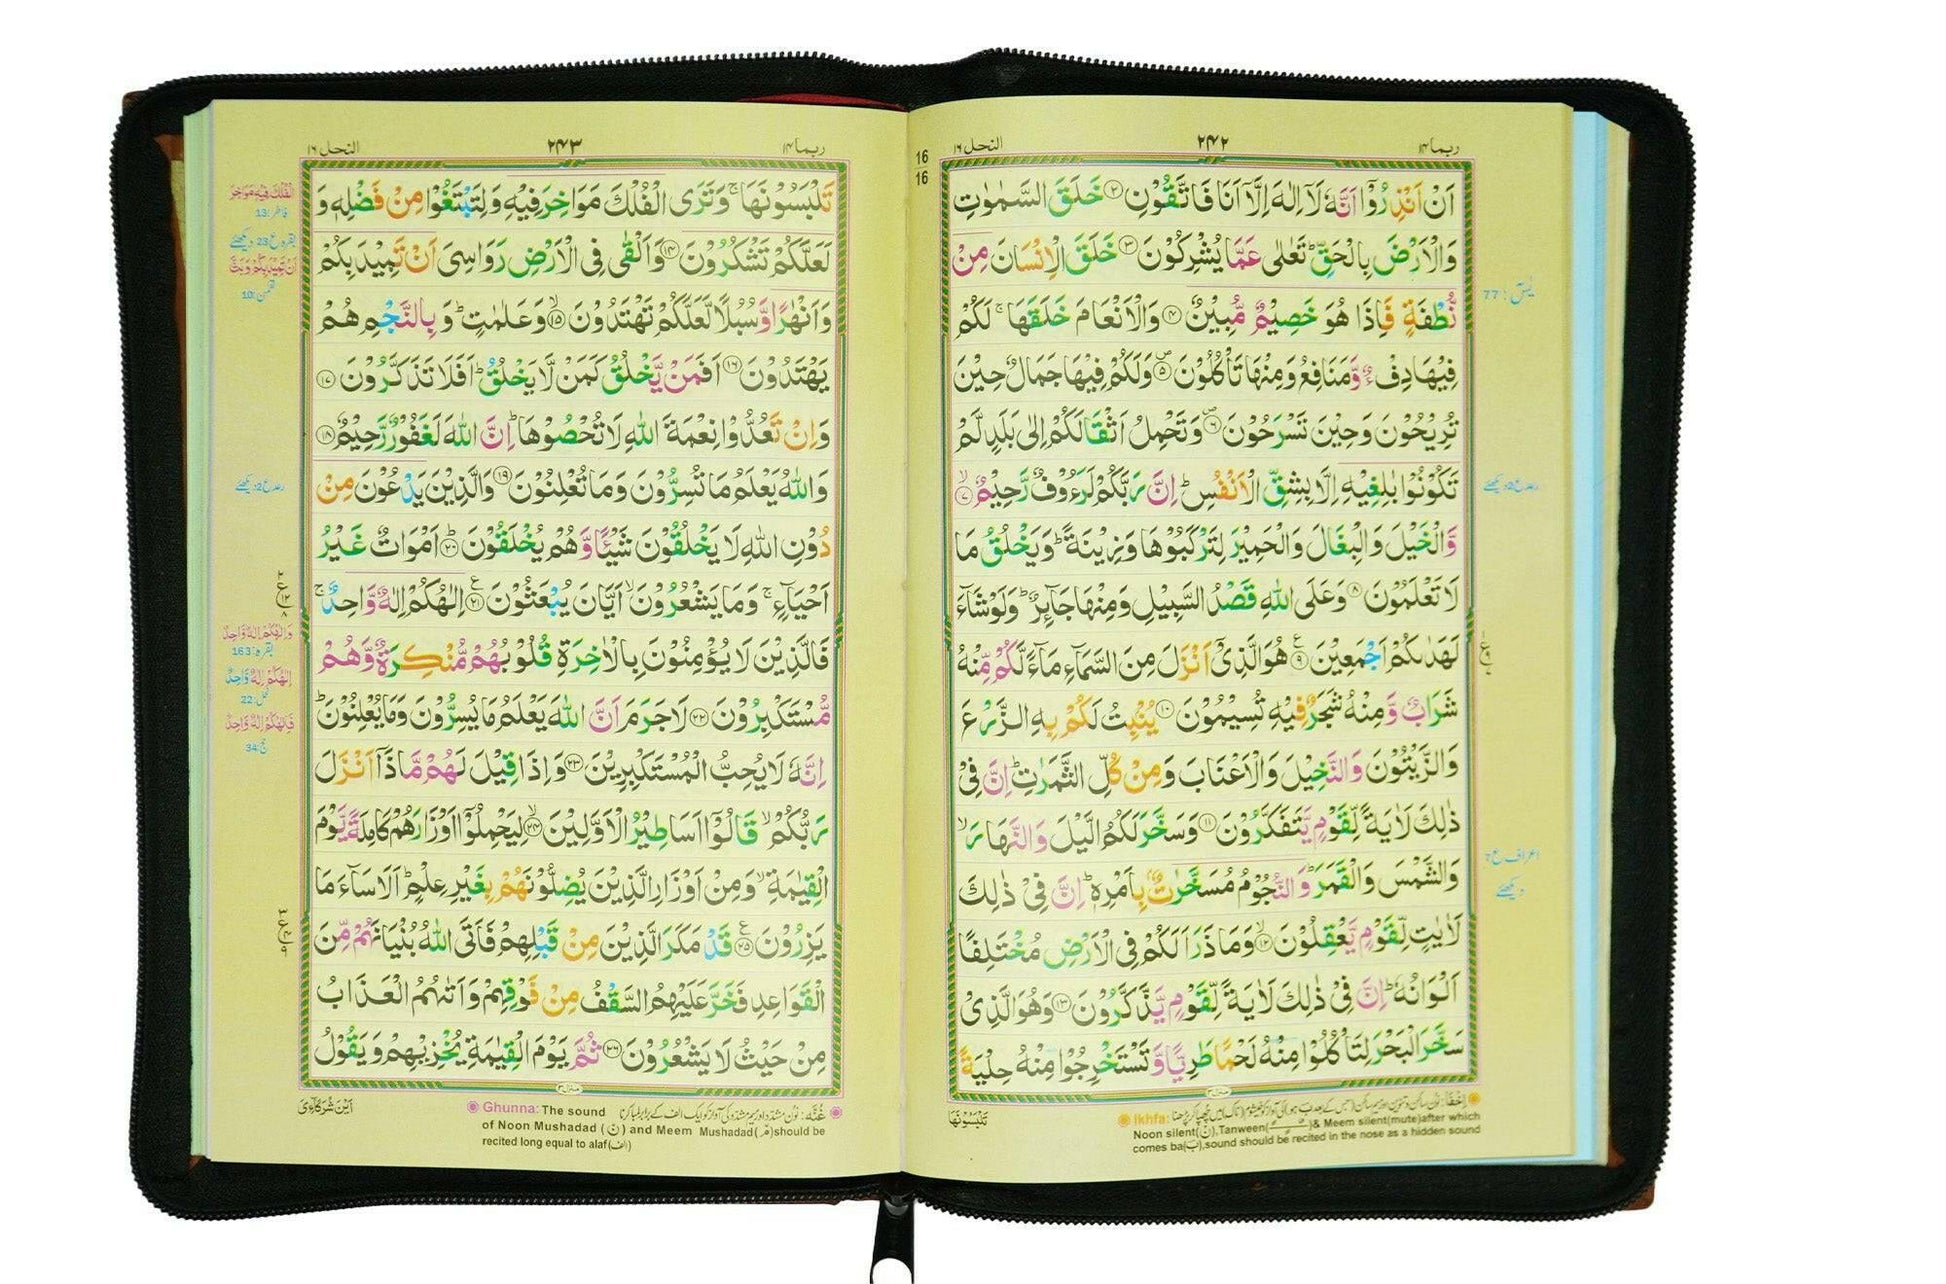 ربما ۱۴
۲۴۲
النحل ۱۶
اَنْ اَنْذِرُوْۤا اَنَّهٗ لَاۤ اِلٰهَ اِلَّاۤ اَنَا فَاتَّقُوْنِ ۝۲ خَلَقَ السَّمٰوٰتِ
وَالْاَرْضَ بِالْحَقِّ ؕ تَعٰلٰى عَمَّا يُشْرِكُوْنَ ۝۳ خَلَقَ الْاِنْسَانَ مِنْ
نُّطْفَةٍ فَاِذَا هُوَ خَصِيْمٌ مُّبِيْنٌ ۝۴ وَالْاَنْعَامَ خَلَقَهَا ۚ لَكُمْ
فِيْهَا دِفْءٌ وَّمَنَافِعُ وَمِنْهَا تَاْكُلُوْنَ ۝۵ وَلَكُمْ فِيْهَا جَمَالٌ حِيْنَ
تُرِيْحُوْنَ وَحِيْنَ تَسْرَحُوْنَ ۝۶ وَتَحْمِلُ اَثْقَالَكُمْ اِلٰى بَلَدٍ لَّمْ
تَكُوْنُوْا بٰلِغِيْهِ اِلَّا بِشِقِّ الْاَنْفُسِ ؕ اِنَّ رَبَّكُمْ لَرَءُوْفٌ رَّحِيْمٌ ۝۷
وَّالْخَيْلَ وَالْبِغَالَ وَالْحَمِيْرَ لِتَرْكَبُوْهَا وَزِيْنَةً ؕ وَيَخْلُقُ مَا
لَا تَعْلَمُوْنَ ۝۸ وَعَلَى اللّٰهِ قَصْدُ السَّبِيْلِ وَمِنْهَا جَآىِٕرٌ ؕ وَلَوْ شَآءَ
لَهَدٰىكُمْ اَجْمَعِيْنَ ۝۹ هُوَ الَّذِيْۤ اَنْزَلَ مِنَ السَّمَآءِ مَآءً لَّكُمْ مِّنْهُ
شَرَابٌ وَّمِنْهُ شَجَرٌ فِيْهِ تُسِيْمُوْنَ ۝۱۰ يُنْۢبِتُ لَكُمْ بِهِ الزَّرْعَ
وَالزَّيْتُوْنَ وَالنَّخِيْلَ وَالْاَعْنَابَ وَمِنْ كُلِّ الثَّمَرٰتِ ؕ اِنَّ فِيْ
ذٰلِكَ لَاٰيَةً لِّقَوْمٍ يَّتَفَكَّرُوْنَ ۝۱۱ وَسَخَّرَ لَكُمُ الَّيْلَ وَالنَّهَارَ ۙ
وَالشَّمْسَ وَالْقَمَرَ ؕ وَالنُّجُوْمُ مُسَخَّرٰتٌۢ بِاَمْرِهٖ ؕ اِنَّ فِيْ ذٰلِكَ
لَاٰيٰتٍ لِّقَوْمٍ يَّعْقِلُوْنَ ۝۱۲ وَمَا ذَرَاَ لَكُمْ فِى الْاَرْضِ مُخْتَلِفًا
اَلْوَانُهٗ ؕ اِنَّ فِيْ ذٰلِكَ لَاٰيَةً لِّقَوْمٍ يَّذَّكَّرُوْنَ ۝۱۳ وَهُوَ الَّذِيْ
سَخَّرَ الْبَحْرَ لِتَاْكُلُوْا مِنْهُ لَحْمًا طَرِيًّا وَّتَسْتَخْرِجُوْا مِنْهُ حِلْيَةً
16
16
يٰسٓ : 77
رعد ع 2 دیکھئے
اعراف ع 7
دیکھئے
تَلْبَسُوْنَهَا
Ikhfa:
Noon silent(نْ),Tanween( )& Meem silent(mute)after which
comes ba(بَ),sound should be recited in the nose as a hidden sound
ربما ۱۴
۲۴۳
النحل ۱۶
تَلْبَسُوْنَهَا ۚ وَتَرَى الْفُلْكَ مَوَاخِرَ فِيْهِ وَلِتَبْتَغُوْا مِنْ فَضْلِهٖ وَ
لَعَلَّكُمْ تَشْكُرُوْنَ ۝۱۴ وَاَلْقٰى فِى الْاَرْضِ رَوَاسِىَ اَنْ تَمِيْدَ بِكُمْ
وَاَنْهٰرًا وَّسُبُلًا لَّعَلَّكُمْ تَهْتَدُوْنَ ۝۱۵ وَعَلٰمٰتٍ ؕ وَبِالنَّجْمِ هُمْ
يَهْتَدُوْنَ ۝۱۶ اَفَمَنْ يَّخْلُقُ كَمَنْ لَّا يَخْلُقُ ؕ اَفَلَا تَذَكَّرُوْنَ ۝۱۷
وَاِنْ تَعُدُّوْا نِعْمَةَ اللّٰهِ لَا تُحْصُوْهَا ؕ اِنَّ اللّٰهَ لَغَفُوْرٌ رَّحِيْمٌ ۝۱۸
وَاللّٰهُ يَعْلَمُ مَا تُسِرُّوْنَ وَمَا تُعْلِنُوْنَ ۝۱۹ وَالَّذِيْنَ يَدْعُوْنَ مِنْ
دُوْنِ اللّٰهِ لَا يَخْلُقُوْنَ شَيْـًٔا وَّهُمْ يُخْلَقُوْنَ ۝۲۰ اَمْوَاتٌ غَيْرُ
اَحْيَآءٍ ۚ وَمَا يَشْعُرُوْنَ ۙ اَيَّانَ يُبْعَثُوْنَ ۝۲۱ اِلٰهُكُمْ اِلٰهٌ وَّاحِدٌ ۚ
فَالَّذِيْنَ لَا يُؤْمِنُوْنَ بِالْاٰخِرَةِ قُلُوْبُهُمْ مُّنْكِرَةٌ وَّهُمْ
مُّسْتَكْبِرُوْنَ ۝۲۲ لَا جَرَمَ اَنَّ اللّٰهَ يَعْلَمُ مَا يُسِرُّوْنَ وَمَا يُعْلِنُوْنَ ؕ
اِنَّهٗ لَا يُحِبُّ الْمُسْتَكْبِرِيْنَ ۝۲۳ وَاِذَا قِيْلَ لَهُمْ مَّاذَاۤ اَنْزَلَ
رَبُّكُمْ ۙ قَالُوْۤا اَسَاطِيْرُ الْاَوَّلِيْنَ ۝۲۴ لِيَحْمِلُوْۤا اَوْزَارَهُمْ كَامِلَةً يَّوْمَ
الْقِيٰمَةِ ۙ وَمِنْ اَوْزَارِ الَّذِيْنَ يُضِلُّوْنَهُمْ بِغَيْرِ عِلْمٍ ؕ اَلَا سَآءَ مَا
يَزِرُوْنَ ۝۲۵ قَدْ مَكَرَ الَّذِيْنَ مِنْ قَبْلِهِمْ فَاَتَى اللّٰهُ بُنْيَانَهُمْ مِّنَ
الْقَوَاعِدِ فَخَرَّ عَلَيْهِمُ السَّقْفُ مِنْ فَوْقِهِمْ وَاَتٰىهُمُ الْعَذَابُ
مِنْ حَيْثُ لَا يَشْعُرُوْنَ ۝۲۶ ثُمَّ يَوْمَ الْقِيٰمَةِ يُخْزِيْهِمْ وَيَقُوْلُ
الْفُلْكَ فِيْهِ مَوَاخِرَ
فاطر : 13
بقره ع 23 دیکھئے
اَنْ تَمِيْدَ بِكُمْ وَبَثَّ
لقمن : 10
رعد ع 2 دیکھئے
وَاِلٰهُكُمْ اِلٰهٌ وَّاحِدٌ
بقره : 163
اِلٰهُكُمْ اِلٰهٌ وَّاحِدٌ
نحل : 22
فَاِلٰهُكُمْ اِلٰهٌ وَّاحِدٌ
حج : 34
اَيْنَ شُرَكَآءِىَ
Ghunna: The sound
of Noon Mushadad (نّ) and Meem Mushadad(مّ)should be
recited long equal to alaf(الف)
غُنّہ : نون مشدّد اور میم مشدّد کی آواز کو ایک الف کے برابر لمبا کرنا